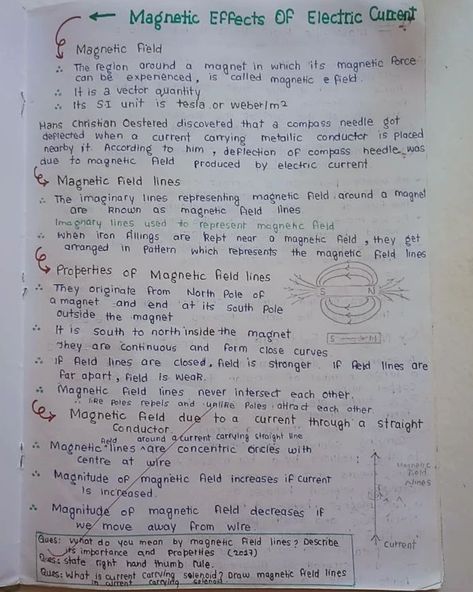 ← Magnetic Effects Of Electric Current
Magnetic Field
∴ The region around a magnet in which its magnetic force
can be experienced, is called magnetic e field.
∴ It is a vector quantity
∴ Its SI unit is tesla or weber/m2
Hans Christian Oestered discovered that a compass needle got
deflected when a current carrying metallic conductor is placed
nearby it. According to him, deflection of compass needle was
due to magnetic field produced by electric current.
Magnetic Field lines
∴ The imaginary lines representing magnetic field around a magnet
are known as magnetic field lines
Imagnary lines used to represent magnetic field
∴ When iron fillings are kept near a magnetic field, they get
arranged in pattern which represents the magnetic field lines
Properties of Magnetic Field lines
∴ They originate from North Pole of
a magnet and end at its south Pole
outside the magnet
S N
∴ It is south to north inside the magnet
S N
They are continuous and form close curves
∴ If field lines are closed, field is stronger. If field lines are
far apart, field is weak.
∴ Magnetic field lines never intersect each other.
∴ like Poles repels and unlike Poles attract each other
Magnetic field due to a current through a straight
Conductor
∴ Magnetic field lines around a current carrying straight line are concentric circles with
centre at wire
∴ Magnitude of magnetic field increases if current
is increased.
∴ Magnitude of magnetic field decreases if
we move away from wire
Magnetic
field
lines
current
Ques: What do you mean by magnetic field lines? Describe
its importance and properties (2017)
Ques: state right hand thumb rule.
Ques: What is current carrying solenoid? Draw magnetic field lines
in current carrying solenoid.